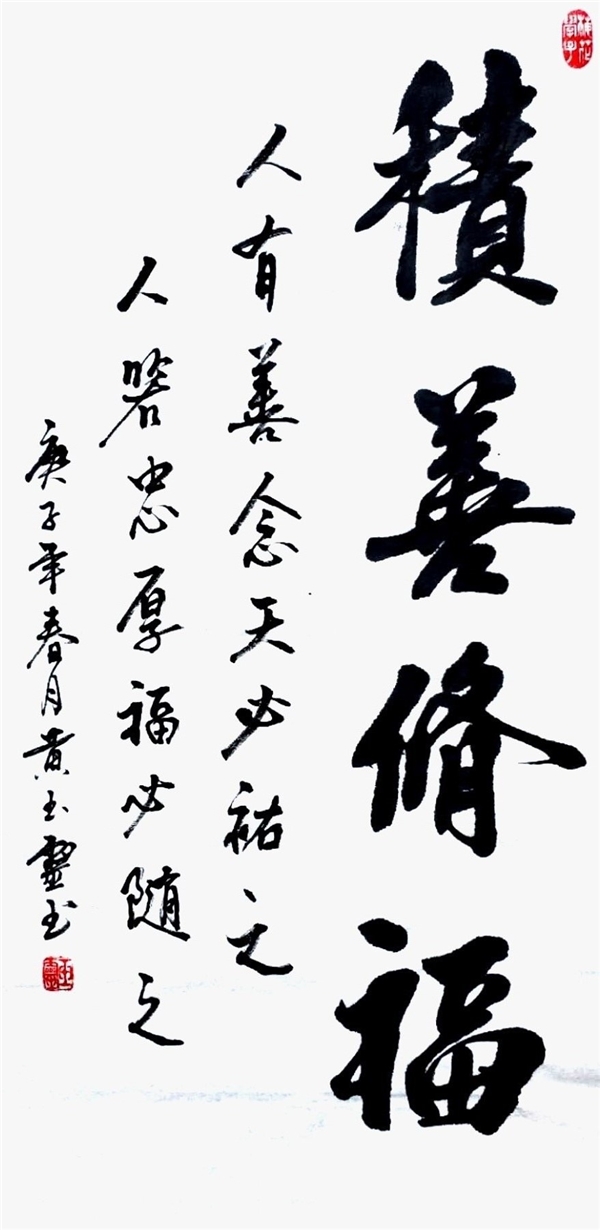 積善脩福
人有善念天必祐之
人若忠厚福必随之
庚子年春月黄玉靈书